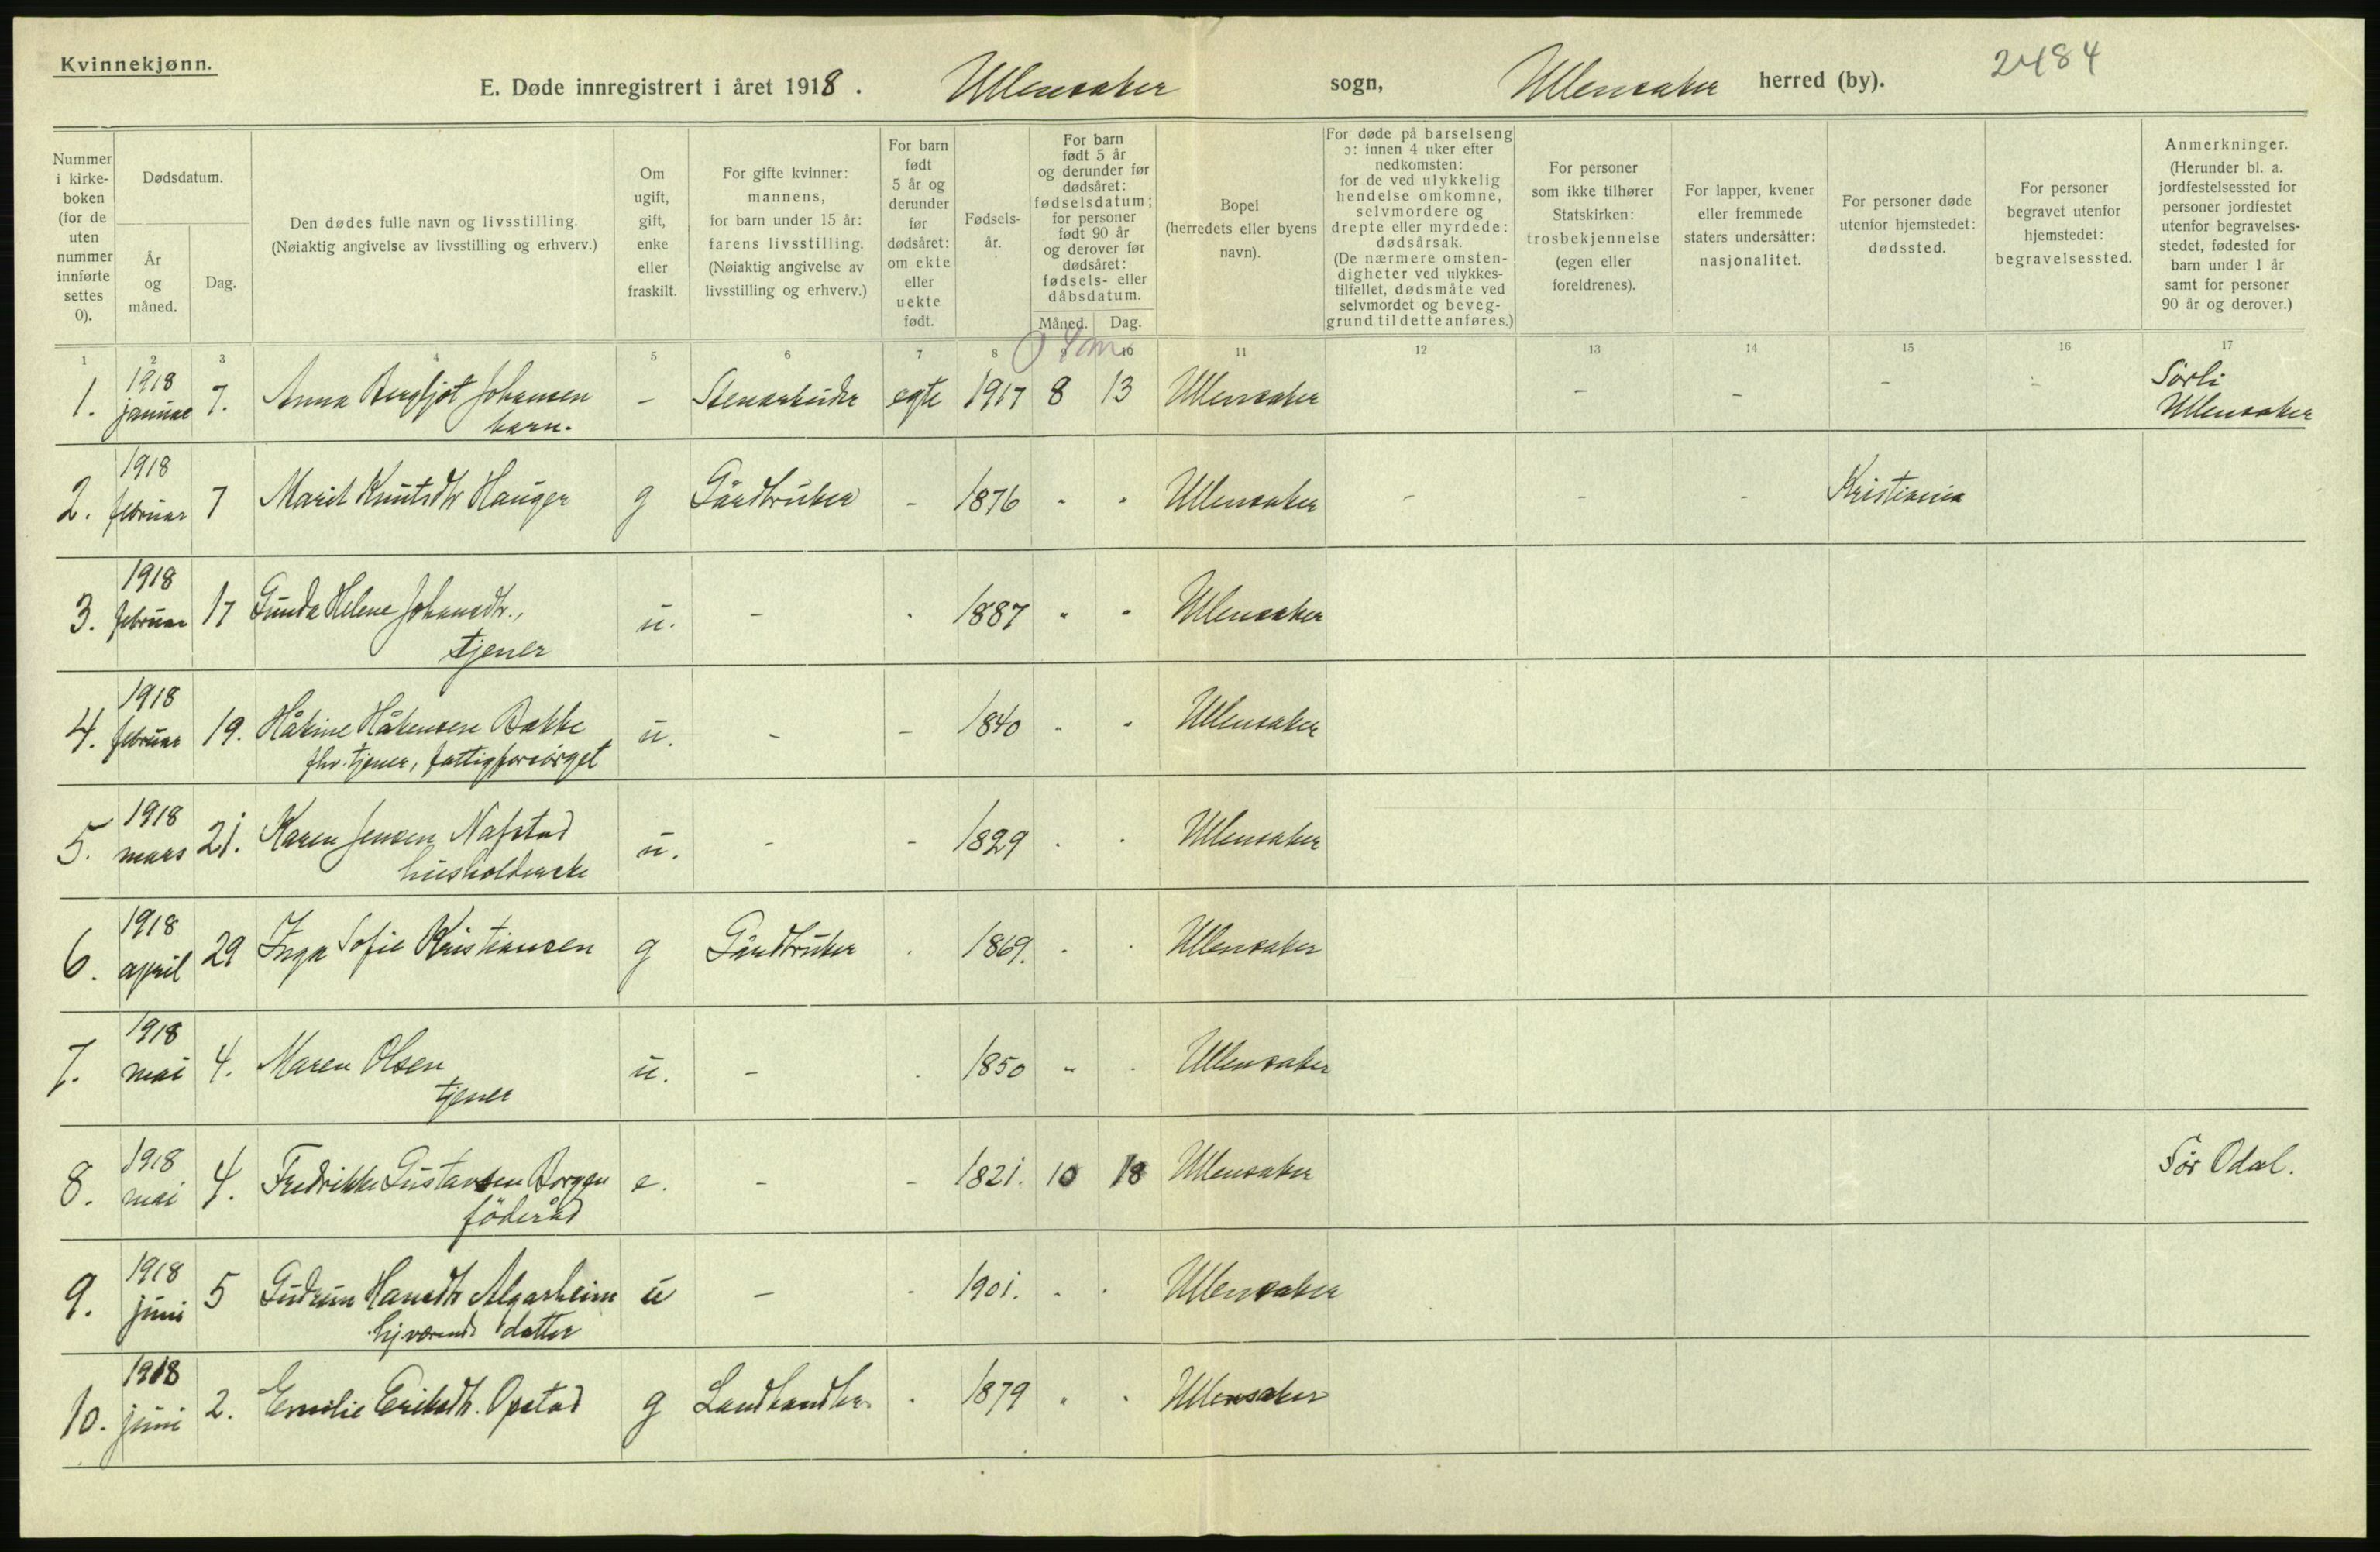 Kvinnekjønn.
2484
E. Døde innregistrert i året 1918. Ullensaker sogn, Ullensaker herred (by).
Nummer i kirke-boken (for de uten nummer innførte settes 0).
Dødsdatum.
År og måned.
Dag.
Den dødes fulle navn og livsstilling.
(Nøiaktig angivelse av livsstilling og erhverv.)
Om ugift, gift, enke eller fraskilt.
For gifte kvinner: mannens, for barn under 15 år: farens livsstilling. (Nøiaktig angivelse av livsstilling og erhverv.)
For barn født 5 år og derunder før dødsåret: om ekte eller uekte født.
Fødsels-år.
For barn født 5 år og derunder før dødsåret: fødselsdatum; for personer født 90 år og derover før dødsåret: fødsels- eller dåbsdatum.
Måned. Dag.
Bopel (herredets eller byens navn).
For døde på barselseng ɔ: innen 4 uker efter nedkomsten: for de ved ulykkelig hendelse omkomne, selvmordere og drepte eller myrdede: dødsårsak. (De nærmere omsten-digheter ved ulykkes-tilfellet, dødsmåte ved selvmordet og beveg-grund til dette anføres.)
For personer som ikke tilhører Statskirken: trosbekjennelse (egen eller foreldrenes).
For lapper, kvener eller fremmede staters undersåtter: nasjonalitet.
For personer døde utenfor hjemstedet: dødssted.
For personer begravet utenfor hjemstedet: begravelsessted.
Anmerkninger. (Herunder bl. a. jordfestelsessted for personer jordfestet utenfor begravelses-stedet, fødested for barn under 1 år samt for personer 90 år og derover.)
1 2 3 4 5 6 7 8 10 11 12 13 14 15 16 17
1. 1918 januar 7. Anna Bergljot Johansen - Stenarbeider egte 1917 8 13 Ullensaker - - - - Sørli
barn. Ullensaker
2. 1918 februar 7 Marit Knutsdtr Hauger g Gårdbruker - 1876 " " Ullensaker - - - Kristiania
3. 1918 februar 17 Gunda Helene Johansdtr., u. - - 1887 " " Ullensaker
tjener
4. 1918 februar 19. Håkine Håkensen Bakke u. - - 1840 " " Ullensaker
fhv. tjener, fattigforsørget
5. 1918 mars 21. Karen Jensen Nafstad u. - - 1829 " " Ullensaker
husholderske
6. 1918 april 29 Inga Sofie Kristiansen g Gårdbruker - 1869. " " Ullensaker
7. 1918 mai 4. Maren Olsen u. - - 1850 " " Ullensaker
tjener
8. 1918 mai 4. Fredrikke Gustavsen Borgen e. - - 1821. 10 18 Ullensaker Sör Odal.
föderåd
9. 1918 juni 5 Gudrun Hansdtr Algarheim u - - 1901. " " Ullensaker
hjværende datter
10. 1918 juni 2. Emilie Eriksdtr. Opstad g Landhandler - 1879 " " Ullensaker